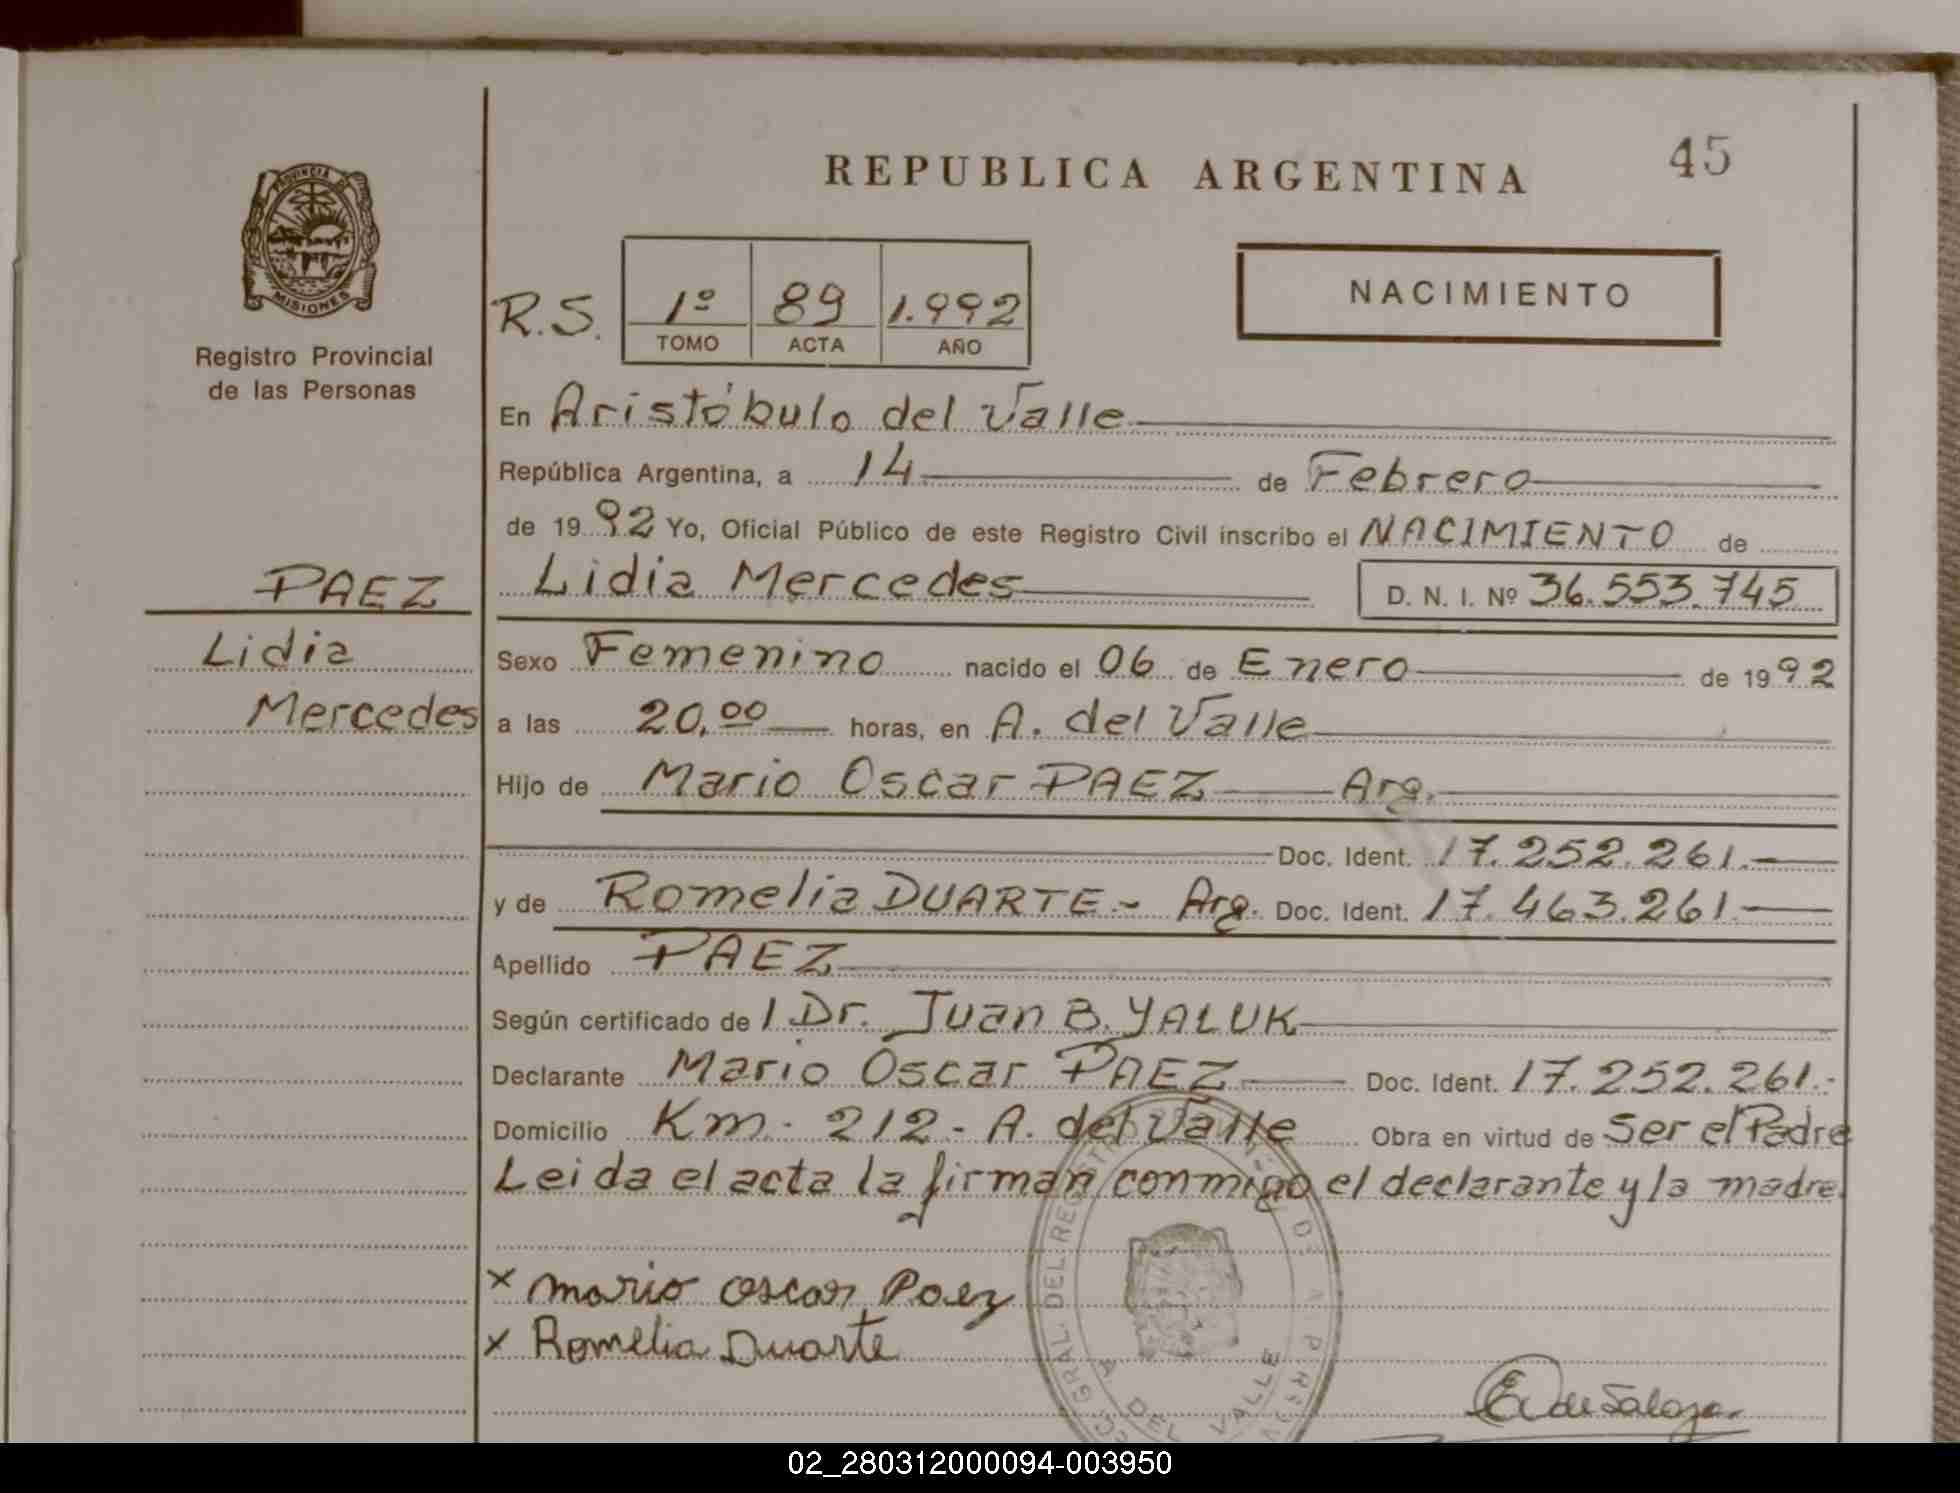 REPUBLICA ARGENTINA
45
PROVINCIA DE
MISIONES
Registro Provincial
de las Personas
R.S.
1º 89 1.992
TOMO ACTA AÑO
NACIMIENTO
En Aristóbulo del Valle
República Argentina, a 14 de Febrero
de 1992 Yo, Oficial Público de este Registro Civil inscribo el NACIMIENTO de
PAEZ
Lidia
Mercedes
Lidia Mercedes D. N. I. Nº 36.553.745
Sexo Femenino nacido el 06 de Enero de 1992
a las 20,00 horas, en A. del Valle
Hijo de Mario Oscar PAEZ Arg.
Doc. Ident. 17.252.261.-
y de Romelia DUARTE - Arg. Doc. Ident. 17.463.261.-
Apellido PAEZ
Según certificado del Dr. Juan B. YALUK
Declarante Mario Oscar PAEZ Doc. Ident. 17.252.261.-
Domicilio Km. 212 - A. del Valle Obra en virtud de Ser el Padre
Leida el acta la firman conmigo el declarante y la madre.
x mario oscar Paez
x Romelia Duarte
GRAL. DEL
A DEL VALLE
02_280312000094-003950